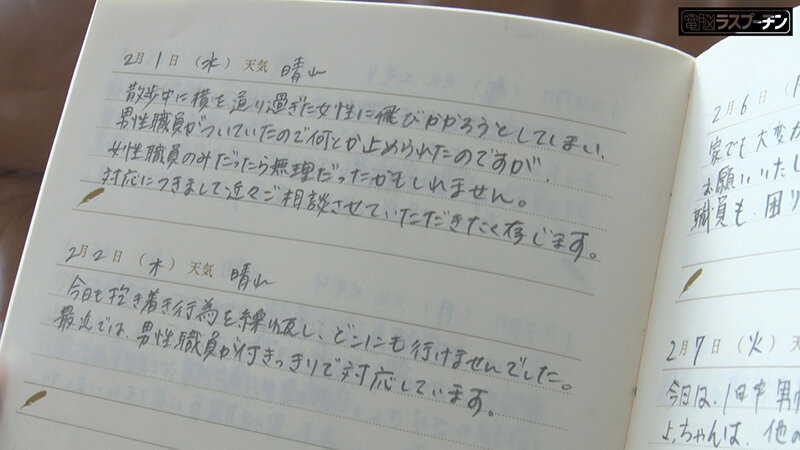 電脳ラスプーチン
2月1日（水）天気 晴れ
散歩中に横を通り過ぎた女性に飛びかかろうとしてしまい、
男性職員がついていたので何とか止められたのですが、
女性職員のみだったら無理だったかもしれません。
対応につきまして近々ご相談させていただきたく存じます。
2月2日（木）天気 晴れ
今日も抱き着き行為を繰り返し、どこにも行けませんでした。
最近では、男性職員が付きっきりで対応しています。
2月6日（
家でも大変
お願いいたし
職員も、困り
2月7日（火）天
今日は、1日中男
ちゃんは、他の